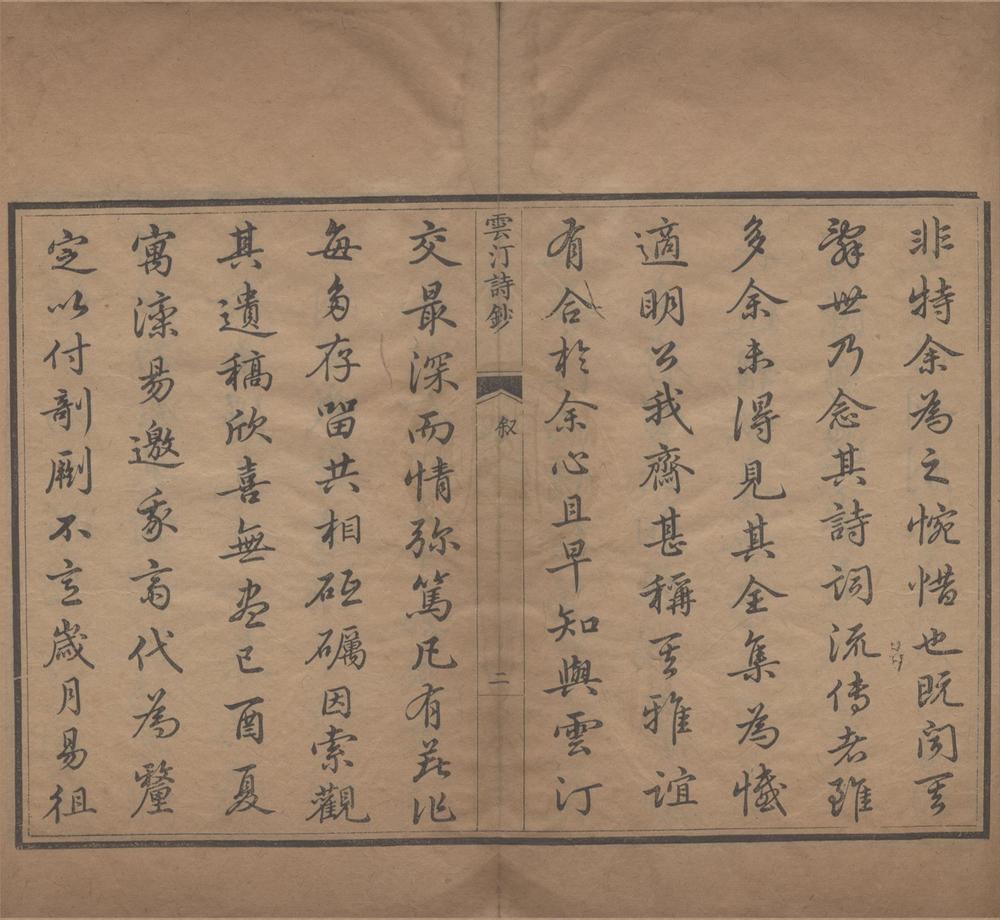 非特余為之惋惜也既聞其
辭世乃念其詩詞流傳者雖
多余未得見其全集為憾
適明公我齋甚稱其雅誼
有合於余心且早知與雲汀
雲汀詩鈔
叙
二
交最深而情弥篤凡有著作
每多存留共相砥礪因索觀
其遺稿欣喜無盡己酉夏
寓灤昜邀余商代為釐
定以付剞劂不意歲月易徂